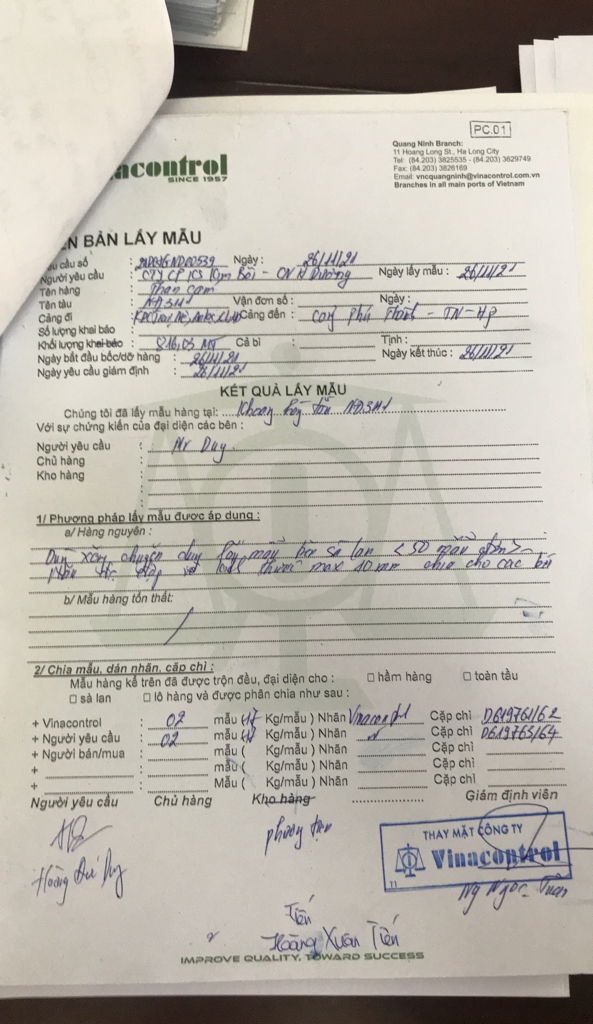 PC.01
acontrol
SINCE 1957
Quang Ninh Branch:
11 Hoang Long St., Ha Long City
Tel: (84.203) 3825535 - (84.203) 3629749
Fax: (84.203) 3826169
Email: vncquangninh@vinacontrol.com.vn
Branches in all main ports of Vietnam
N BẢN LẤY MẪU
u cầu số : Ngày : 26/11/21
Người yêu cầu : CTY CP Kim Bôi - CN H Dương Ngày lấy mẫu : 26/11/21
Tên hàng : Than cám
Tên tàu Vận đơn số : Ngày :
Cảng đi : Cảng đến : cảng Phú Thành - TN-HP
Số lượng khai báo :
Khối lượng khai báo : 816,03 MT Cả bì : Tịnh :
Ngày bắt đầu bốc/dỡ hàng : 26/11/21 Ngày kết thúc : 26/11/21
Ngày yêu cầu giám định : 26/11/21
KẾT QUẢ LẤY MẪU
Chúng tôi đã lấy mẫu hàng tại:
Với sự chứng kiến của đại diện các bên :
Người yêu cầu : Mr Duy.
Chủ hàng :
Kho hàng :
1/ Phương pháp lấy mẫu được áp dụng :
a/ Hàng nguyên :
Dùng xẻng chuyên dụng lấy mẫu trên sà lan < 50 mẫu đơn >
max 10mm chia cho các bên
b/ Mẫu hàng tổn thất:
2/ Chia mẫu, dán nhãn, cặp chì :
Mẫu hàng kể trên đã được trộn đều, đại diện cho : □ hầm hàng □ toàn tầu
□ sà lan □ lô hàng và được phân chia như sau :
+ Vinacontrol : 02 mẫu ( Kg/mẫu ) Nhãn Vinacontrol Cặp chì D619761/62
+ Người yêu cầu : 02 mẫu ( Kg/mẫu ) Nhãn Cặp chì D619763/64
+ Người bán/mua : mẫu ( Kg/mẫu ) Nhãn Cặp chì
+ : mẫu ( Kg/mẫu ) Nhãn Cặp chì
+ : Mẫu ( Kg/mẫu ) Nhãn Cặp chì
Người yêu cầu Chủ hàng Kho hàng Giám định viên
phương tiện
THAY MẶT CÔNG TY
Vinacontrol
Hoàng Đức Duy
Ng Ngọc Tuân
Tiến
Hoàng Xuân Tiến
IMPROVE QUALITY, TOWARD SUCCESS